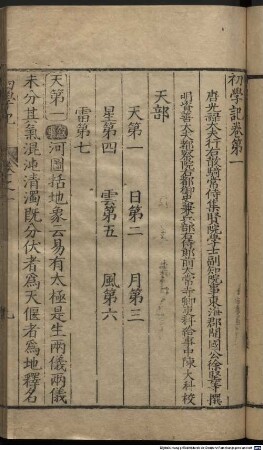 初學記卷第一
唐光祿大夫行右散騎常侍集賢院學士副知院事東海郡開國公徐堅等撰
明資善大夫都察院右都御史兼兵部右侍郎前大常寺卿吏科給事中陳大科校
天部
天第一 日第二 月第三
星第四 雲第五 風第六
雷第七
天第一 河圖括地象云易有太極是生兩儀兩儀
未分其氣混沌清濁既分伏者為天偃者為地釋名
初學記 卷之一 一 九